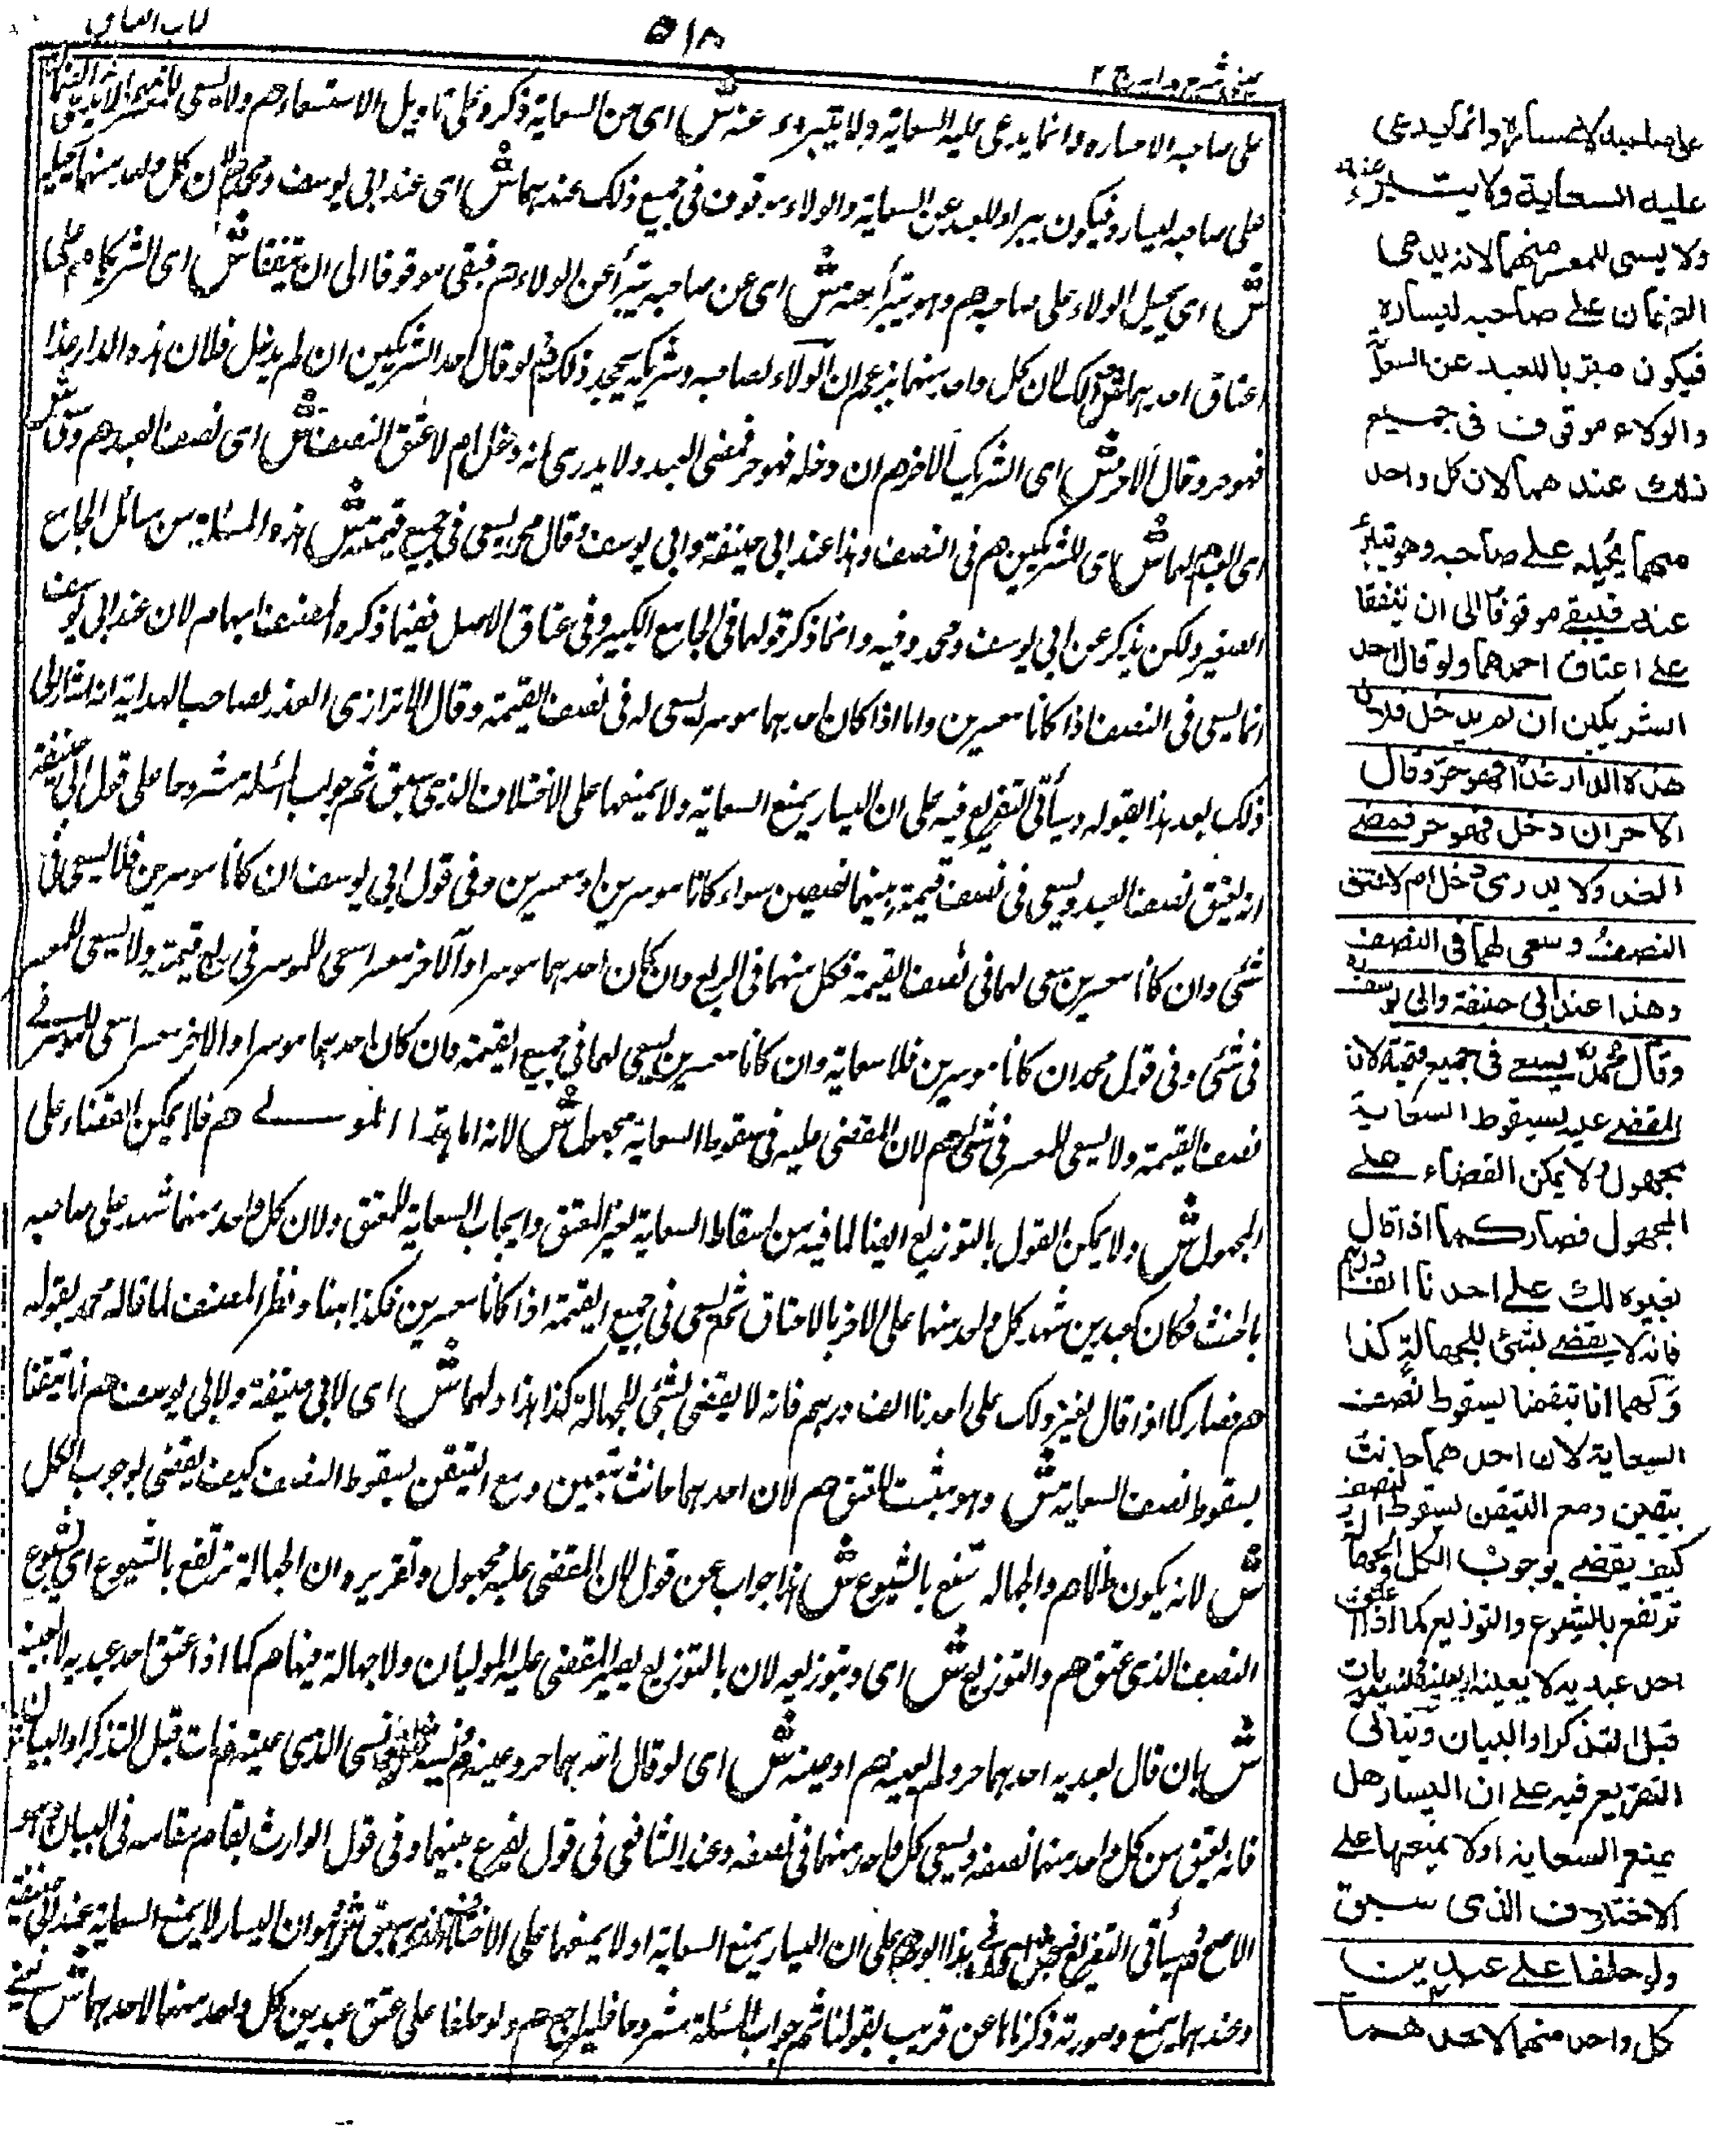 كتاب العتاق
٥١٨
عينى شرح هدايه ج ٢
على صاحبه الاعسار هم وانما يدعى عليه السعاية ولا يتبرء عنه ش اى من السعاية ذكره على تاويل الاستسعاء هم ولا يسعى للمعسر منهما لانه يدعى الضمان
على صاحبه ليساره فيكون مبرأ للعبد عن السعاية والولاء موقوف فى جميع ذلك عندهما ش اى عند ابى يوسف ومحمد هم لان كل واحد منهما يحيله
ش اى يحيل الولاء على صاحبه هم وهو يتبرأ عنه ش اى عن صاحبه يتبرأ عن الولاء هم فيبقى موقوفا الى ان يتفقا ش اى الشريكان هم على
اعتاق احدهما ش ذلك لان كل واحد منهما يزعم ان الولاء لصاحبه وشريكه يجحد ذلك هم ولو قال احد الشريكين ان لم يدخل فلان هذه الدار غدا
فهو حر وقال الآخر ش اى الشريك الآخر هم ان دخله فهو حر فمضى الغد ولا يدرى انه دخل ام لا عتق النصف ش اى نصف العبد هم وسعى ش
اى العبد هم لهما ش اى للشريكين هم فى النصف وهذا عند ابى حنيفة وابى يوسف وقال محمد يسعى فى جميع قيمته ش هذه المسئلة من مسائل الجامع
الصغير ولكن يذكر عن ابى يوسف ومحمد وفيه وانما ذكر قولهما فى الجامع الكبير وفى عتاق الاصل ففيما ذكره المصنف ابهام لان عند ابى يوسف
انما يسعى فى النصف اذا كانا معسرين واما اذا كان احدهما موسر يسعى له فى نصف القيمة وقال الاترازى العذر لصاحب الهداية انه اشار الى
ذلك بعد هذا بقوله ويأتى التفريع فيه على ان اليسار يمنع السعاية ولا يمنعها على الاختلاف الذى سبق ثم جواب المسئلة مشروحا على قول ابى حنيفة
انه يعتق نصف العبد ويسعى فى نصف قيمته بينهما نصفين سواء كانا موسرين او معسرين وفى قول ابى يوسف ان كانا موسرين فلا يسعى فى
شئ وان كانا معسرين سعى لهما فى نصف القيمة فكل منهما فى الربع وان كان احدهما موسرا والآخر معسرا سعى للموسر فى ربع قيمته ولا يسعى للمعسر
فى شئ وفى قول محمد ان كانا موسرين فلا سعاية وان كانا معسرين يسعى لهما فى جميع القيمة وان كان احدهما موسرا والآخر معسرا سعى للموسر فى
نصف القيمة ولا يسعى للمعسر فى شئ هم لان المقضى عليه فى سقوط السعاية مجهول ش لانه اما هذا المولى هم فلا يمكن القضاء على
المجهول ش ولا يمكن القول بالتوزيع ايضا لما فيه من اسقاط السعاية لغير المعتق وايجاب السعاية للمعتق ولان كل واحد منهما شهد على صاحبه
بالحنث فكان كعبد بين شهد كل واحد منهما على الآخر بالاعتاق ثم يسعى فى جميع القيمة اذا كانا معسرين فكذا هنا ونظر المصنف لما قاله محمد بقوله
هم فصار كما اذا قال لغيره لك على احدنا الف درهم فانه لا يقضى بشئ للجهالة كذا هذا ولهما ش اى لابى حنيفة ولابى يوسف هم انا تيقنا
بسقوط نصف السعاية ش وهو مثبت للعتق هم لان احدهما حانث بيقين ومع التيقن بسقوط النصف كيف يقضى بوجوب الكل
ش لانه يكون ظلما هم والجهالة ترتفع بالشيوع ش هذا جواب عن قول لان المقضى عليه مجهول وتقريره ان الجهالة ترتفع بالشيوع اى بشيوع
النصف الذى عتق هم والتوزيع ش اى وبتوزيعه لان بالتوزيع يصير المقضى عليه الموليان ولا جهالة فيهما هم كما اذا عتق احد عبديه لا بعينه
ش بان قال لعبديه احدهما حر ولم يعينه هم او بعينه ش اى لو قال احدهما حر وعينه هم ونسيه ش اى نسى الذى عينه هم فمات قبل التذكر او البيان
فانه يعتق من كل واحد منهما نصفه ويسعى كل واحد منهما فى نصفه وعند الشافعى فى قول يقرع بينهما وفى قول الوارث يقام مقامه فى البيان وهو
الاصح هم ويأتى التفريع فيه ش اى فى هذا الوجه هم على ان اليسار يمنع السعاية او لا يمنعها على الاختلاف الذى سبق ش وهو ان اليسار لا يمنع السعاية عند ابى حنيفة
وعندهما يمنع وصورته ذكرناها عن قريب بقولنا ثم جواب المسئلة مشروحا فليراجع هم ولو حلفا على عتق عبدين كل واحد منهما لاحدهما ش يعنى
على صاحبه الاعسار وانما يدعى
عليه السعاية ولا يتبرء عنه
ولا يسعى للمعسر منهما لانه يدعى
الضمان على صاحبه ليساره
فيكون مبرئا للعبد عن السعاية
والولاء موقوف فى جميع
ذلك عندهما لان كل واحد
منهما يحيله على صاحبه وهو يتبرأ
عنه فيبقى موقوفا الى ان يتفقا
على اعتاق احدهما ولو قال احد
الشريكين ان لم يدخل فلان
هذه الدار غدا فهو حر وقال
الآخر ان دخل فهو حر فمضى
الغد ولا يدرى دخل ام لا عتق
النصف وسعى لهما فى النصف
وهذا عند ابى حنيفة وابى يوسف
وقال محمد يسعى فى جميع قيمته لان
المقضى عليه بسقوط السعاية
مجهول ولا يمكن القضاء على
المجهول فصار كما اذا قال
لغيره لك على احدنا الف درهم
فانه لا يقضى بشئ للجهالة كذا
ولهما انا تيقنا بسقوط نصف
السعاية لان احدهما حانث
بيقين ومع التيقن بسقوط النصف
كيف يقضى بوجوب الكل والجهالة
ترتفع بالشيوع والتوزيع كما اذا اعتق
احد عبديه لا بعينه او بعينه ونسيه ومات
قبل التذكر او البيان ويتأتى
التفريع فيه على ان اليسار هل
يمنع السعاية او لا يمنعها على
الاختلاف الذى سبق
ولو حلفا على عبدين
كل واحد منهما لاحدهما